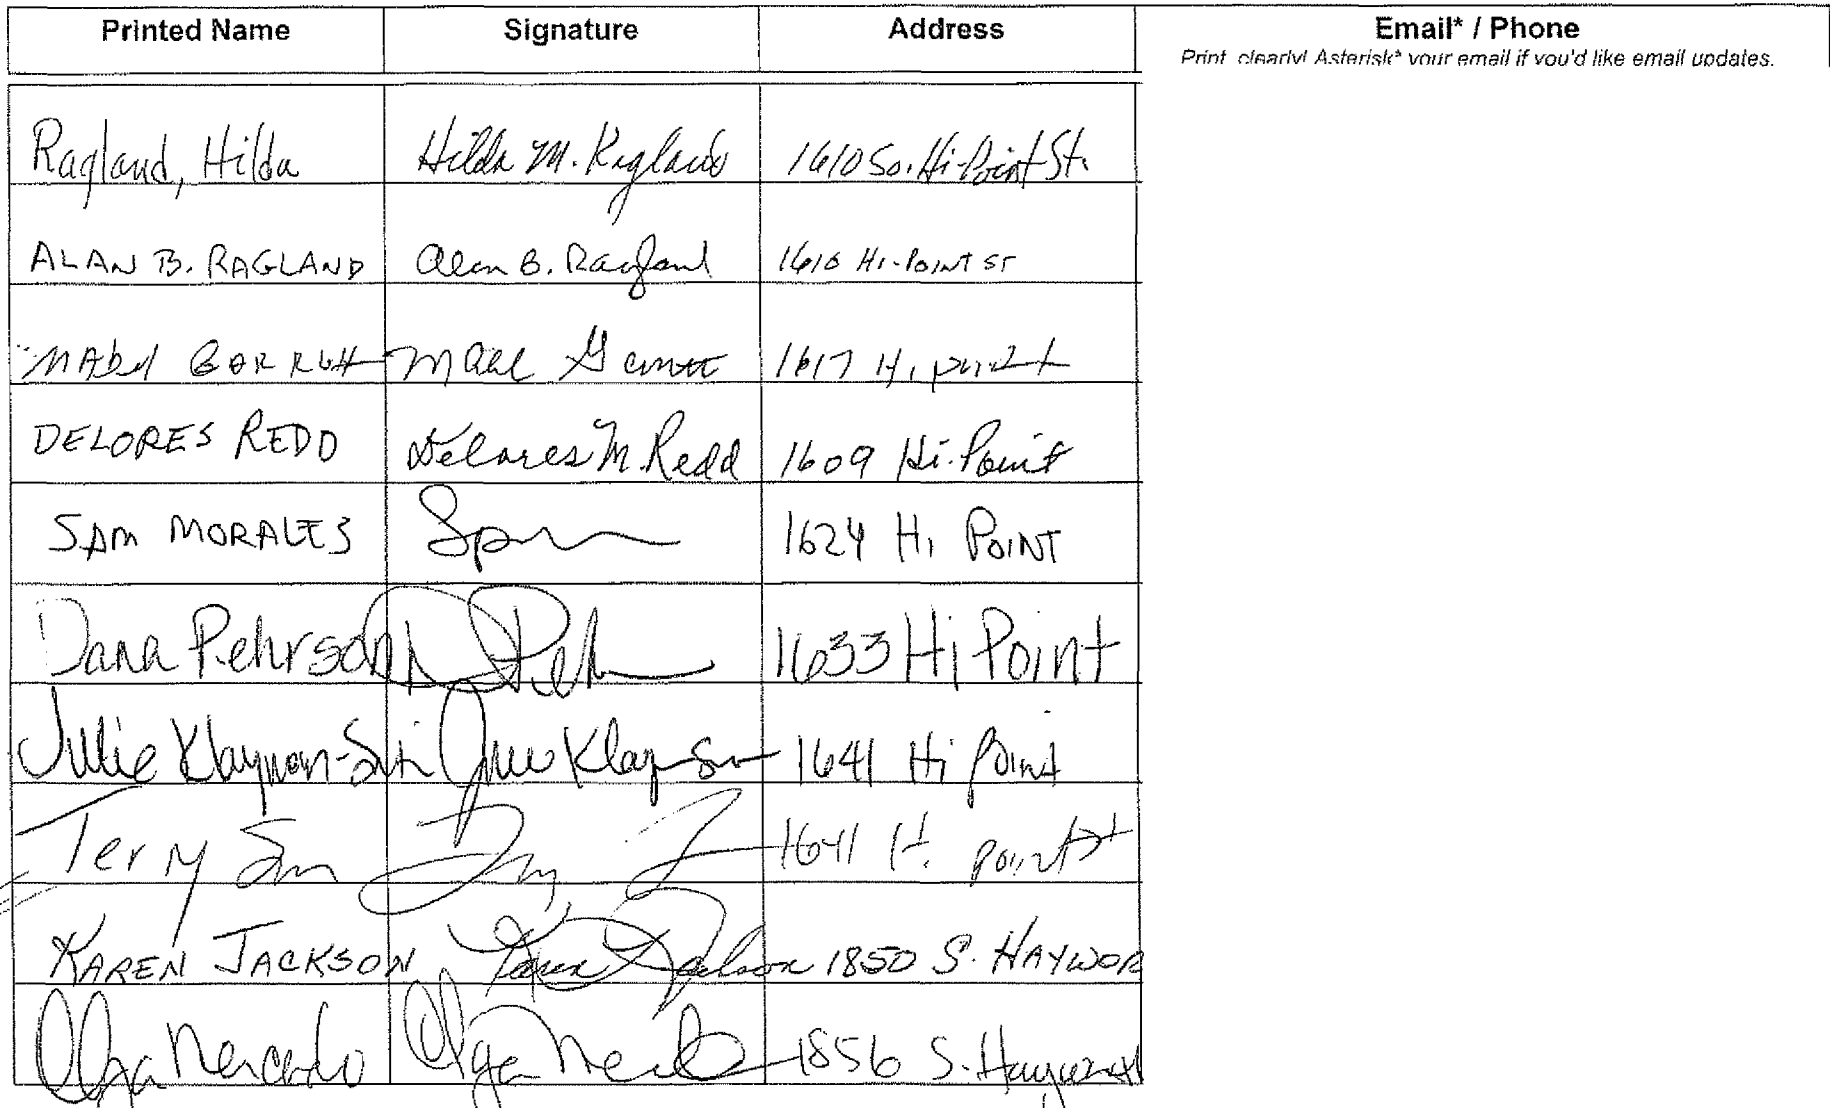 Printed Name Signature Address Email* / Phone
Print clearly! Asterisk* your email if you'd like email updates.
Ragland, Hilda Hilda M. Ragland 1610 So. Hi-Point St.
ALAN B. RAGLAND Alan B. Ragland 1610 Hi-Point St
1617 Hi point
DELORES REDD Delores M. Redd 1609 Hi-Point
SAM MORALES 1624 Hi POINT
Dana Pehrson 1633 Hi Point
Julie Klayman- Julie 1641 Hi Point
Terry 1641 Hi point
KAREN JACKSON Karen Jackson 1850 S. HAYWOR
Olga Mercado Olga 1856 S. Hayworth